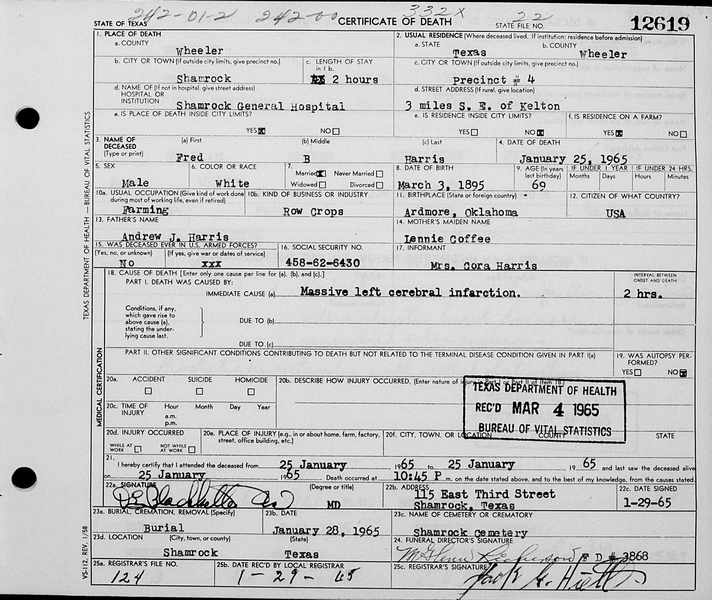 242-01-2 242-00 332X 22
STATE OF TEXAS CERTIFICATE OF DEATH STATE FILE NO. 12619
1. PLACE OF DEATH 2. USUAL RESIDENCE (Where deceased lived. If institution: residence before admission)
a. COUNTY Wheeler a. STATE Texas b. COUNTY Wheeler
b. CITY OR TOWN (If outside city limits, give precinct no.) Shamrock c. LENGTH OF STAY in 1 b. 2 hours c. CITY OR TOWN (If outside city limits, give precinct no.) Precinct # 4
d. NAME OF (If not in hospital, give street address) HOSPITAL OR INSTITUTION Shamrock General Hospital d. STREET ADDRESS (If rural, give location) 3 miles S. E. of Kelton
e. IS PLACE OF DEATH INSIDE CITY LIMITS? YES NO e. IS RESIDENCE INSIDE CITY LIMITS? YES NO f. IS RESIDENCE ON A FARM? YES NO
3. NAME OF DECEASED (Type or print) (a) First Fred (b) Middle B (c) Last Harris 4. DATE OF DEATH January 25, 1965
5. SEX Male 6. COLOR OR RACE White 7. Married Never Married Widowed Divorced 8. DATE OF BIRTH March 3, 1895 9. AGE (In years last birthday) 69 IF UNDER 1 YEAR Months Days IF UNDER 24 HRS. Hours Minutes
10a. USUAL OCCUPATION (Give kind of work done during most of working life, even if retired) Farming 10b. KIND OF BUSINESS OR INDUSTRY Row Crops 11. BIRTHPLACE (State or foreign country) Ardmore, Oklahoma 12. CITIZEN OF WHAT COUNTRY? USA
13. FATHER'S NAME Andrew J. Harris 14. MOTHER'S MAIDEN NAME Lennie Coffee
15. WAS DECEASED EVER IN U.S. ARMED FORCES? (Yes, no, or unknown) No (If yes, give war or dates of service) xxx 16. SOCIAL SECURITY NO. 458-62-6430 17. INFORMANT Mrs. Cora Harris
18. CAUSE OF DEATH [Enter only one cause per line for (a), (b), and (c).] INTERVAL BETWEEN ONSET AND DEATH
PART I. DEATH WAS CAUSED BY:
IMMEDIATE CAUSE (a) Massive left cerebral infarction. 2 hrs.
Conditions, if any, which gave rise to above cause (a), stating the underlying cause last.
DUE TO (b)
DUE TO (c)
PART II. OTHER SIGNIFICANT CONDITIONS CONTRIBUTING TO DEATH BUT NOT RELATED TO THE TERMINAL DISEASE CONDITION GIVEN IN PART I(a) 19. WAS AUTOPSY PERFORMED? YES NO
20a. ACCIDENT SUICIDE HOMICIDE 20b. DESCRIBE HOW INJURY OCCURRED. (Enter nature of injury in Part I or Part II of item 18.)
20c. TIME OF INJURY Hour Month Day Year a.m. p.m.
TEXAS DEPARTMENT OF HEALTH
REC'D MAR 4 1965
BUREAU OF VITAL STATISTICS
20d. INJURY OCCURRED WHILE AT WORK NOT WHILE AT WORK 20e. PLACE OF INJURY (e.g., in or about home, farm, factory, street, office building, etc.) 20f. CITY, TOWN, OR LOCATION COUNTY STATE
21. I hereby certify that I attended the deceased from 25 January 1965 to 25 January 1965 and last saw the deceased alive
on 25 January 1965 Death occurred at 10:45 P m. on the date stated above, and to the best of my knowledge, from the causes stated.
22a. SIGNATURE (Degree or title) MD 22b. ADDRESS 115 East Third Street Shamrock, Texas 22c. DATE SIGNED 1-29-65
23a. BURIAL, CREMATION, REMOVAL (Specify) Burial 23b. DATE January 28, 1965 23c. NAME OF CEMETERY OR CREMATORY Shamrock Cemetery
23d. LOCATION (City, town, or county) Shamrock (State) Texas 24. FUNERAL DIRECTOR'S SIGNATURE F D # 3868
25a. REGISTRAR'S FILE NO. 124 25b. DATE REC'D BY LOCAL REGISTRAR 1-29-65 25c. REGISTRAR'S SIGNATURE
TEXAS DEPARTMENT OF HEALTH — BUREAU OF VITAL STATISTICS
MEDICAL CERTIFICATION
VS-112, REV. 1/58